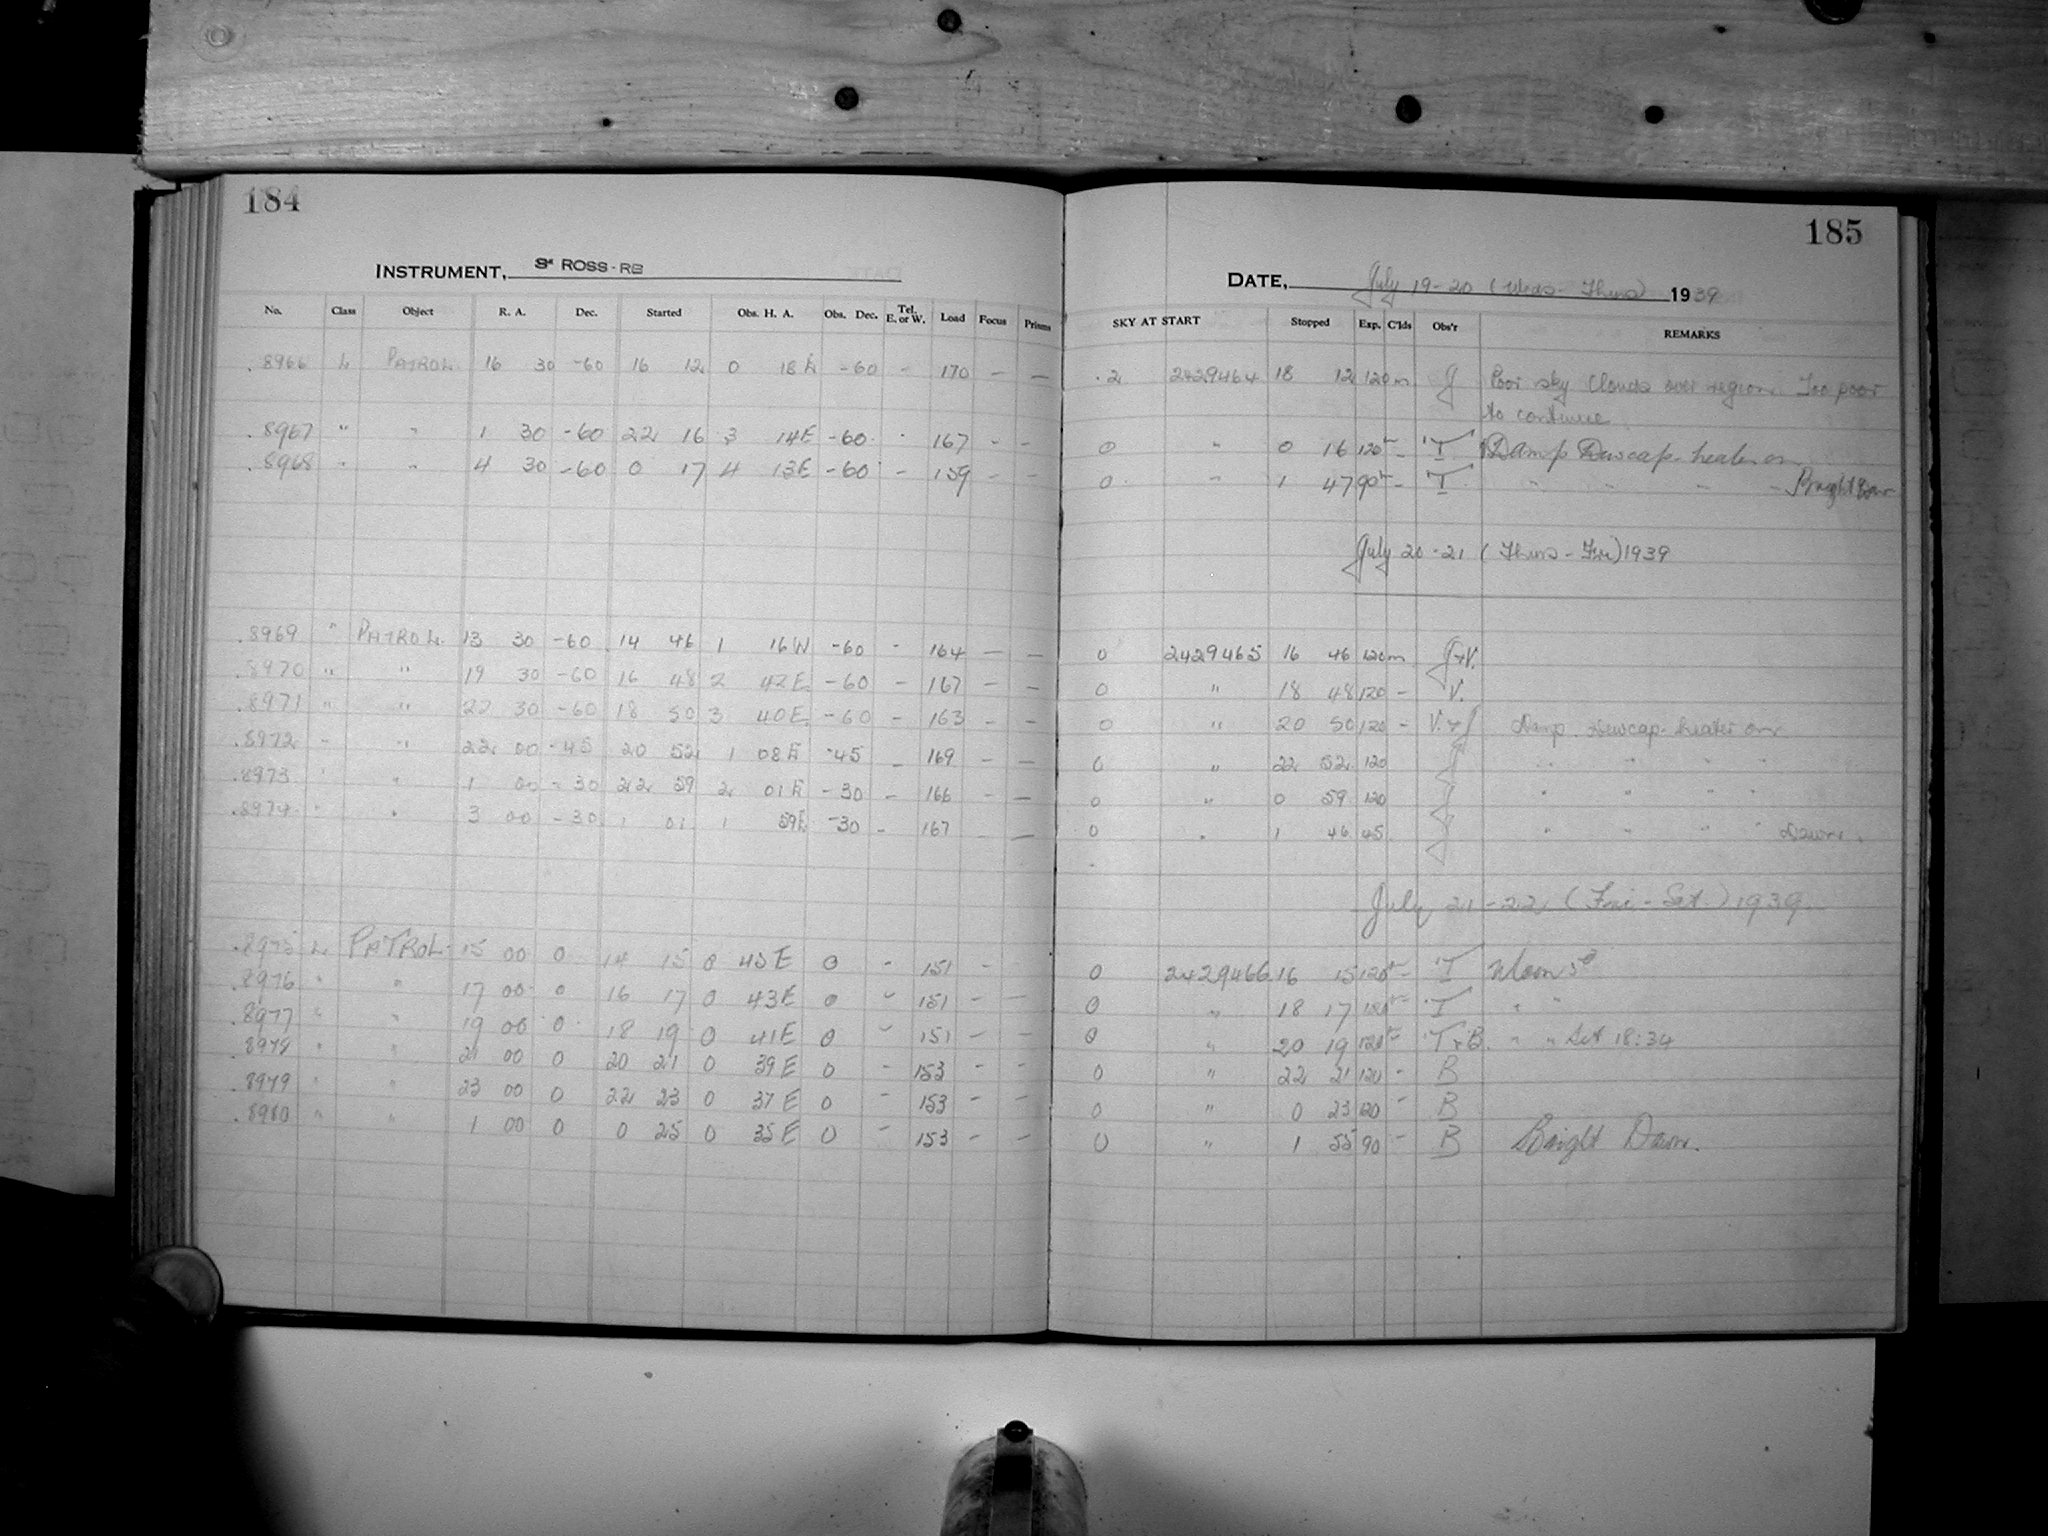 184
185
INSTRUMENT, ROSS-RB
DATE, July 19-20 (Weds-Thurs) 1939
No. Class Object R. A. Dec. Started Obs. H. A. Obs. Dec. Tel. E. or W. Load Focus Prisms SKY AT START Stopped Exp. C'lds Obs'r REMARKS
.8966 L PATROL 16 30 -60 16 12 0 18 E -60 - 170 - - .2 2429464 18 12 120m J Poor sky Clouds over region. Too poor
to continue
.8967 " " 1 30 -60 22 16 3 14E -60 - 167 - - 0 " 0 16 120 - T Damp Dewcap-heater on
.8968 " " 4 30 -60 0 17 4 13E -60 - 159 - - 0 " 1 47 90 - T " " " " Bright Dawn
July 20-21 (Thurs-Fri) 1939
.8969 " PATROL 13 30 -60 14 46 1 16 W -60 - 164 - - 0 2429465 16 46 120m J+V.
.8970 " " 19 30 -60 16 48 2 42E -60 - 167 - - 0 " 18 48 120 - V.
.8971 " " 22 30 -60 18 50 3 40E -60 - 163 - - 0 " 20 50 120 - V.+J Damp. Dewcap-heater on
.8972 " " 22 00 -45 20 52 1 08E -45 - 169 - - 0 " 22 52 120 J " " " "
.8973 " " 1 00 -30 22 59 2 01E -30 - 166 - - 0 " 0 59 120 J " " " "
.8974 " " 3 00 -30 1 01 1 59E -30 - 167 - - 0 " 1 46 45 J " " " " Dawn.
July 21-22 (Fri-Sat) 1939
.8975 L PATROL 15 00 0 14 15 0 45E 0 - 151 - 0 2429466 16 15 120 - T Moon
.8976 " " 17 00 0 16 17 0 43E 0 - 151 - - 0 " 18 17 120 - T " "
.8977 " " 19 00 0 18 19 0 41E 0 - 151 - - 0 " 20 19 120 - T+B. " " Set 18:34
.8978 " " 21 00 0 20 21 0 39E 0 - 153 - - 0 " 22 21 120 - B
.8979 " " 23 00 0 22 23 0 37E 0 - 153 - - 0 " 0 23 120 - B
.8980 " " 1 00 0 0 25 0 35E 0 - 153 - - 0 " 1 55 90 - B Bright Dawn.